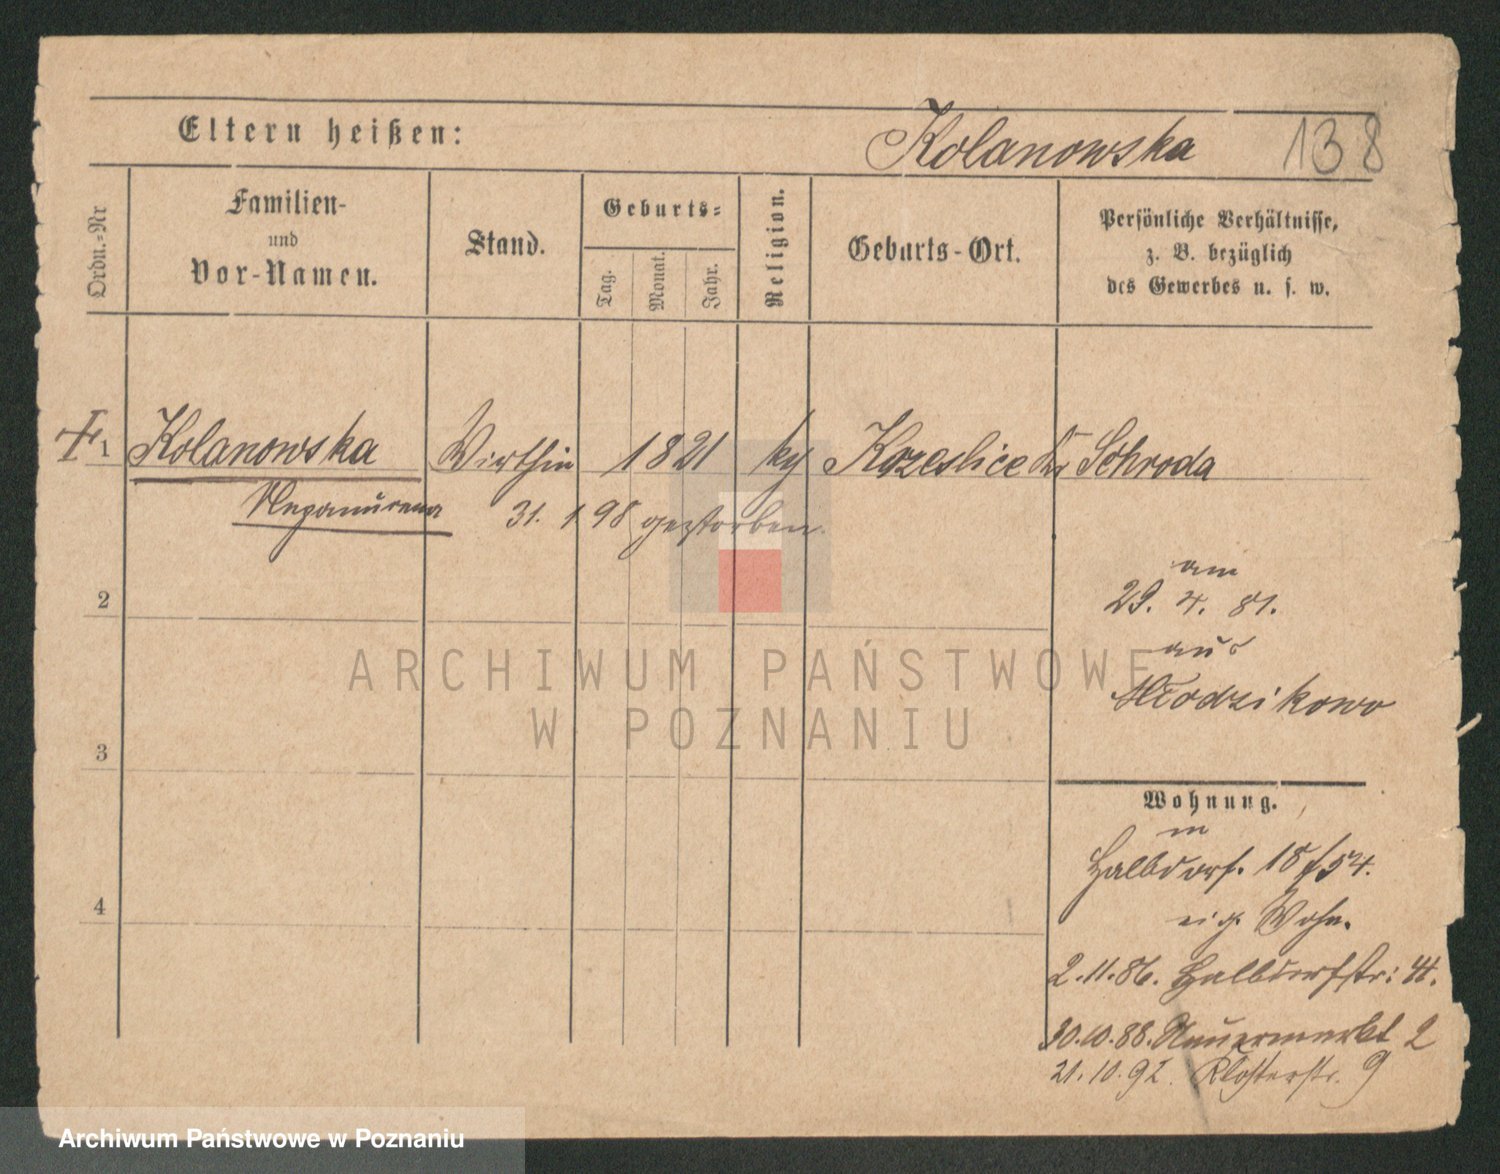 Eltern heißen:
Kolanowska 138
Ordn.-Nr
Familien-
und
Vor-Namen.
Stand.
Geburts-
Tag.
Monat.
Jahr.
Religion.
Geburts-Ort.
Persönliche Verhältnisse,
z. B. bezüglich
des Gewerbes u. s. w.
1 Kolanowska Wirthin 1821 Schroda
31. 1 98 gestorben.
am
2
29. 4. 81.
aus
Młodzikowo
3
Wohnung.
in
Halbdorf. 18/54.
4
eig. Wohn.
2.11.86. Halbdorfstr: 4.
30.10.88. Neuermarkt 2
21.10.92. Klosterstr. 9
ARCHIWUM PAŃSTWOWE
W POZNANIU
Archiwum Państwowe w Poznaniu